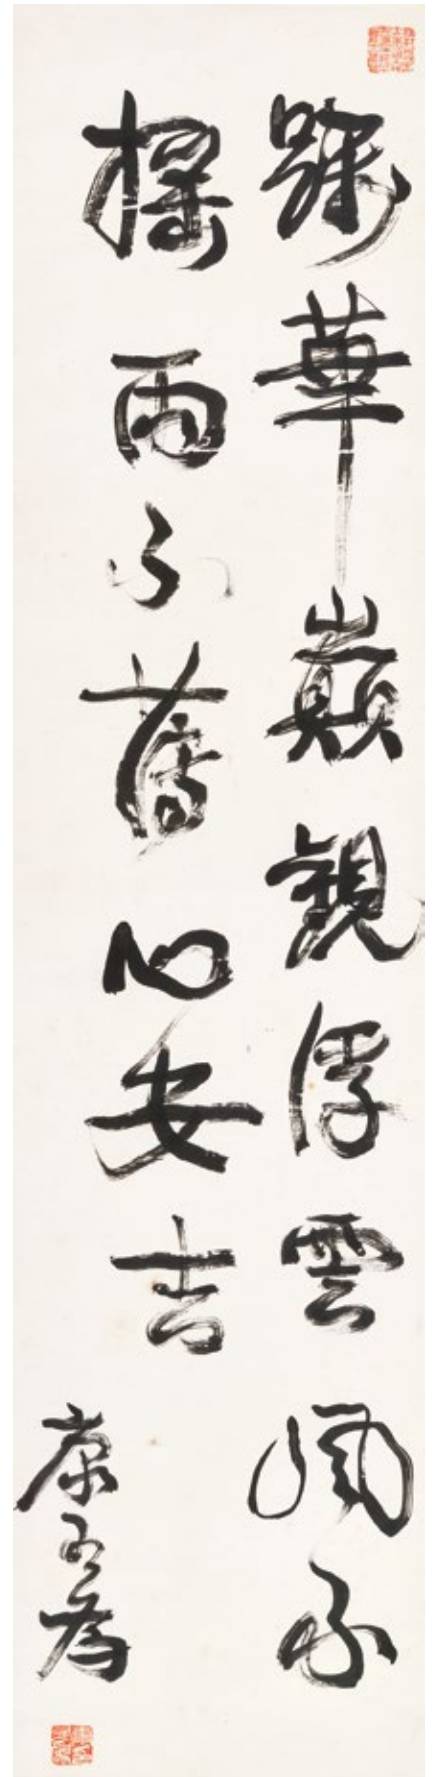 華巔觀浮雲風不
搖雨不薄心安吉
康有為